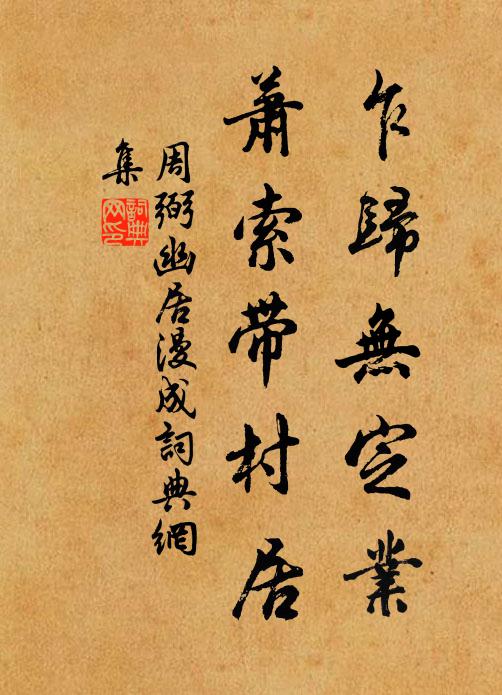 乍歸無定業
蕭索帶村居
周弼幽居漫成詞典網
集
詞典網印